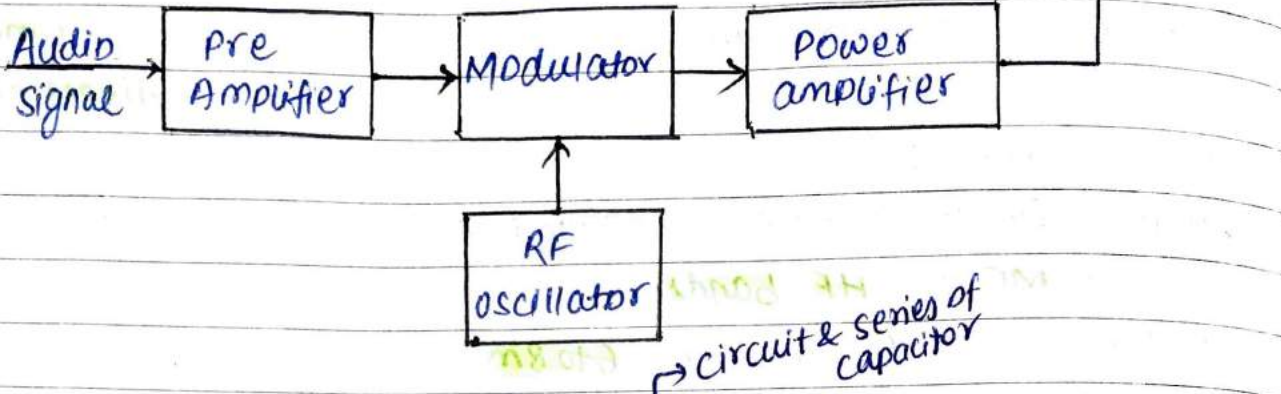 Audio
signal
Pre
Amplifier
Modulator
Power
amplifier
RF
oscillator
HF bands
→ circuit & series of
capacitor